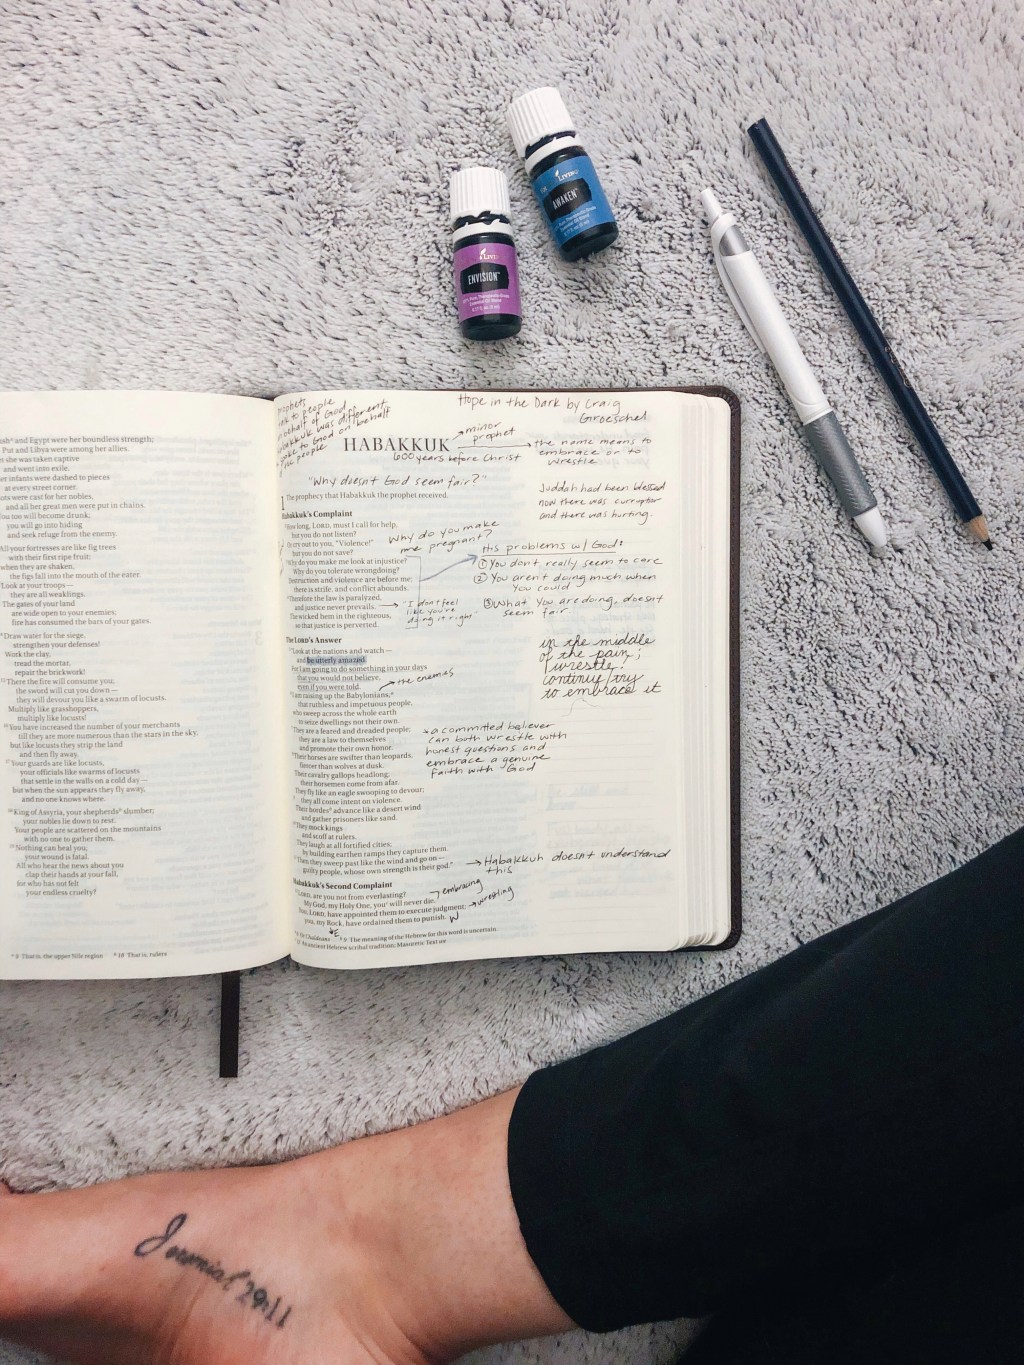 LIVING
AWAKEN™
100% Pure, Therapeutic-Grade
Essential Oil Blend
0.17 fl. oz. (5 ml)
LIVING
ENVISION™
100% Pure, Therapeutic-Grade
Essential Oil Blend
0.17 fl. oz. (5 ml)
and Egypt were her boundless strength;
Put and Libya were among her allies.
she was taken captive
and went into exile.
infants were dashed to pieces
at every street corner.
were cast for her nobles,
and all her great men were put in chains.
too will become drunk;
you will go into hiding
and seek refuge from the enemy.
All your fortresses are like fig trees
with their first ripe fruit;
when they are shaken,
the figs fall into the mouth of the eater.
Look at your troops—
they are all weaklings.
The gates of your land
are wide open to your enemies;
fire has consumed the bars of your gates.
Draw water for the siege,
strengthen your defenses!
Work the clay,
tread the mortar,
repair the brickwork!
There the fire will consume you;
the sword will cut you down—
they will devour you like a swarm of locusts.
Multiply like grasshoppers,
multiply like locusts!
You have increased the number of your merchants
till they are more numerous than the stars in the sky,
but like locusts they strip the land
and then fly away.
Your guards are like locusts,
your officials like swarms of locusts
that settle in the walls on a cold day—
but when the sun appears they fly away,
and no one knows where.
King of Assyria, your shepherds slumber;
your nobles lie down to rest.
Your people are scattered on the mountains
with no one to gather them.
Nothing can heal you;
your wound is fatal.
All who hear the news about you
clap their hands at your fall,
for who has not felt
your endless cruelty?
a 9 That is, the upper Nile region b 18 That is, rulers
prophets
to people
behalf of God
was different
to God on behalf
people
Hope in the Dark by Craig
Groeschel
HABAKKUK
minor
prophet
600 years before Christ
the name means to
embrace or to
wrestle
"Why doesn't God seem fair?"
Juddah had been blessed
now there was curruption
and there was hurting.
The prophecy that Habakkuk the prophet received.
Habakkuk's Complaint
How long, LORD, must I call for help,
but you do not listen?
Or cry out to you, "Violence!"
but you do not save?
Why do you make me look at injustice?
Why do you tolerate wrongdoing?
Destruction and violence are before me;
there is strife, and conflict abounds.
Therefore the law is paralyzed,
and justice never prevails.
The wicked hem in the righteous,
so that justice is perverted.
Why do you make
me pregnant?
His problems w/ God:
① You don't really seem to care
② You aren't doing much when
you could
③ What you are doing, doesn't
seem fair
"I don't feel
like you're
doing it right
The LORD's Answer
"Look at the nations and watch—
and be utterly amazed.
For I am going to do something in your days
that you would not believe,
even if you were told.
I am raising up the Babylonians,
that ruthless and impetuous people,
who sweep across the whole earth
to seize dwellings not their own.
They are a feared and dreaded people;
they are a law to themselves
and promote their own honor.
Their horses are swifter than leopards,
fiercer than wolves at dusk.
Their cavalry gallops headlong;
their horsemen come from afar.
They fly like an eagle swooping to devour;
they all come intent on violence.
Their hordes advance like a desert wind
and gather prisoners like sand.
They mock kings
and scoff at rulers.
They laugh at all fortified cities;
by building earthen ramps they capture them.
Then they sweep past like the wind and go on—
guilty people, whose own strength is their god."
the enemies
in the middle
of the pain;
I wrestle.
continue/try
to embrace it
a committed believer
can both wrestle with
honest questions and
embrace a genuine
faith with God
Habakkuk doesn't understand
this
Habakkuk's Second Complaint
LORD, are you not from everlasting?
My God, my Holy One, you will never die.
You, LORD, have appointed them to execute judgment;
you, my Rock, have ordained them to punish.
embracing
wrestling
W
E
Or Chaldeans 9 The meaning of the Hebrew for this word is uncertain.
An ancient Hebrew scribal tradition; Masoretic Text we
Jeremiah 29:11